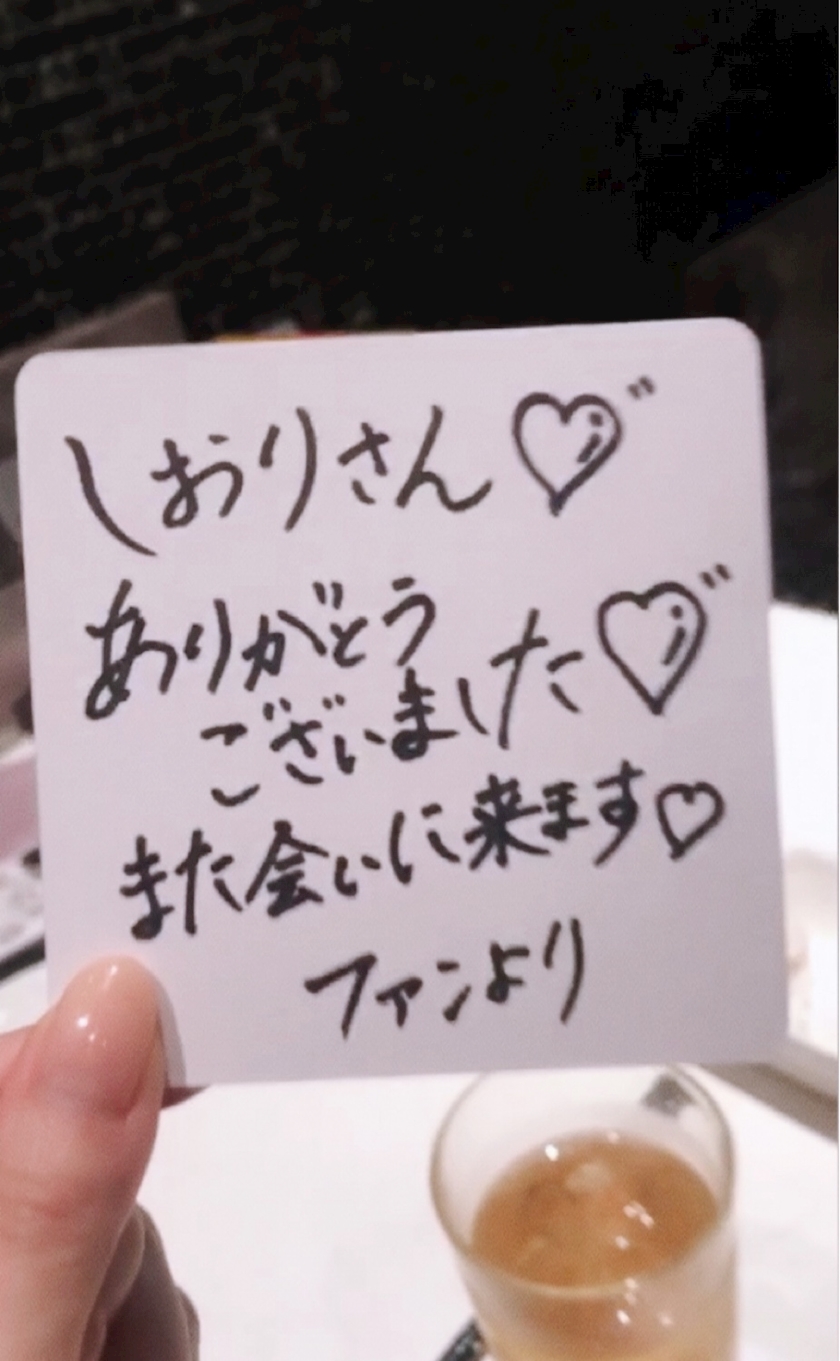 しおりさん♡"
ありがとう
ございました♡"
また会いに来ます♡
ファンより